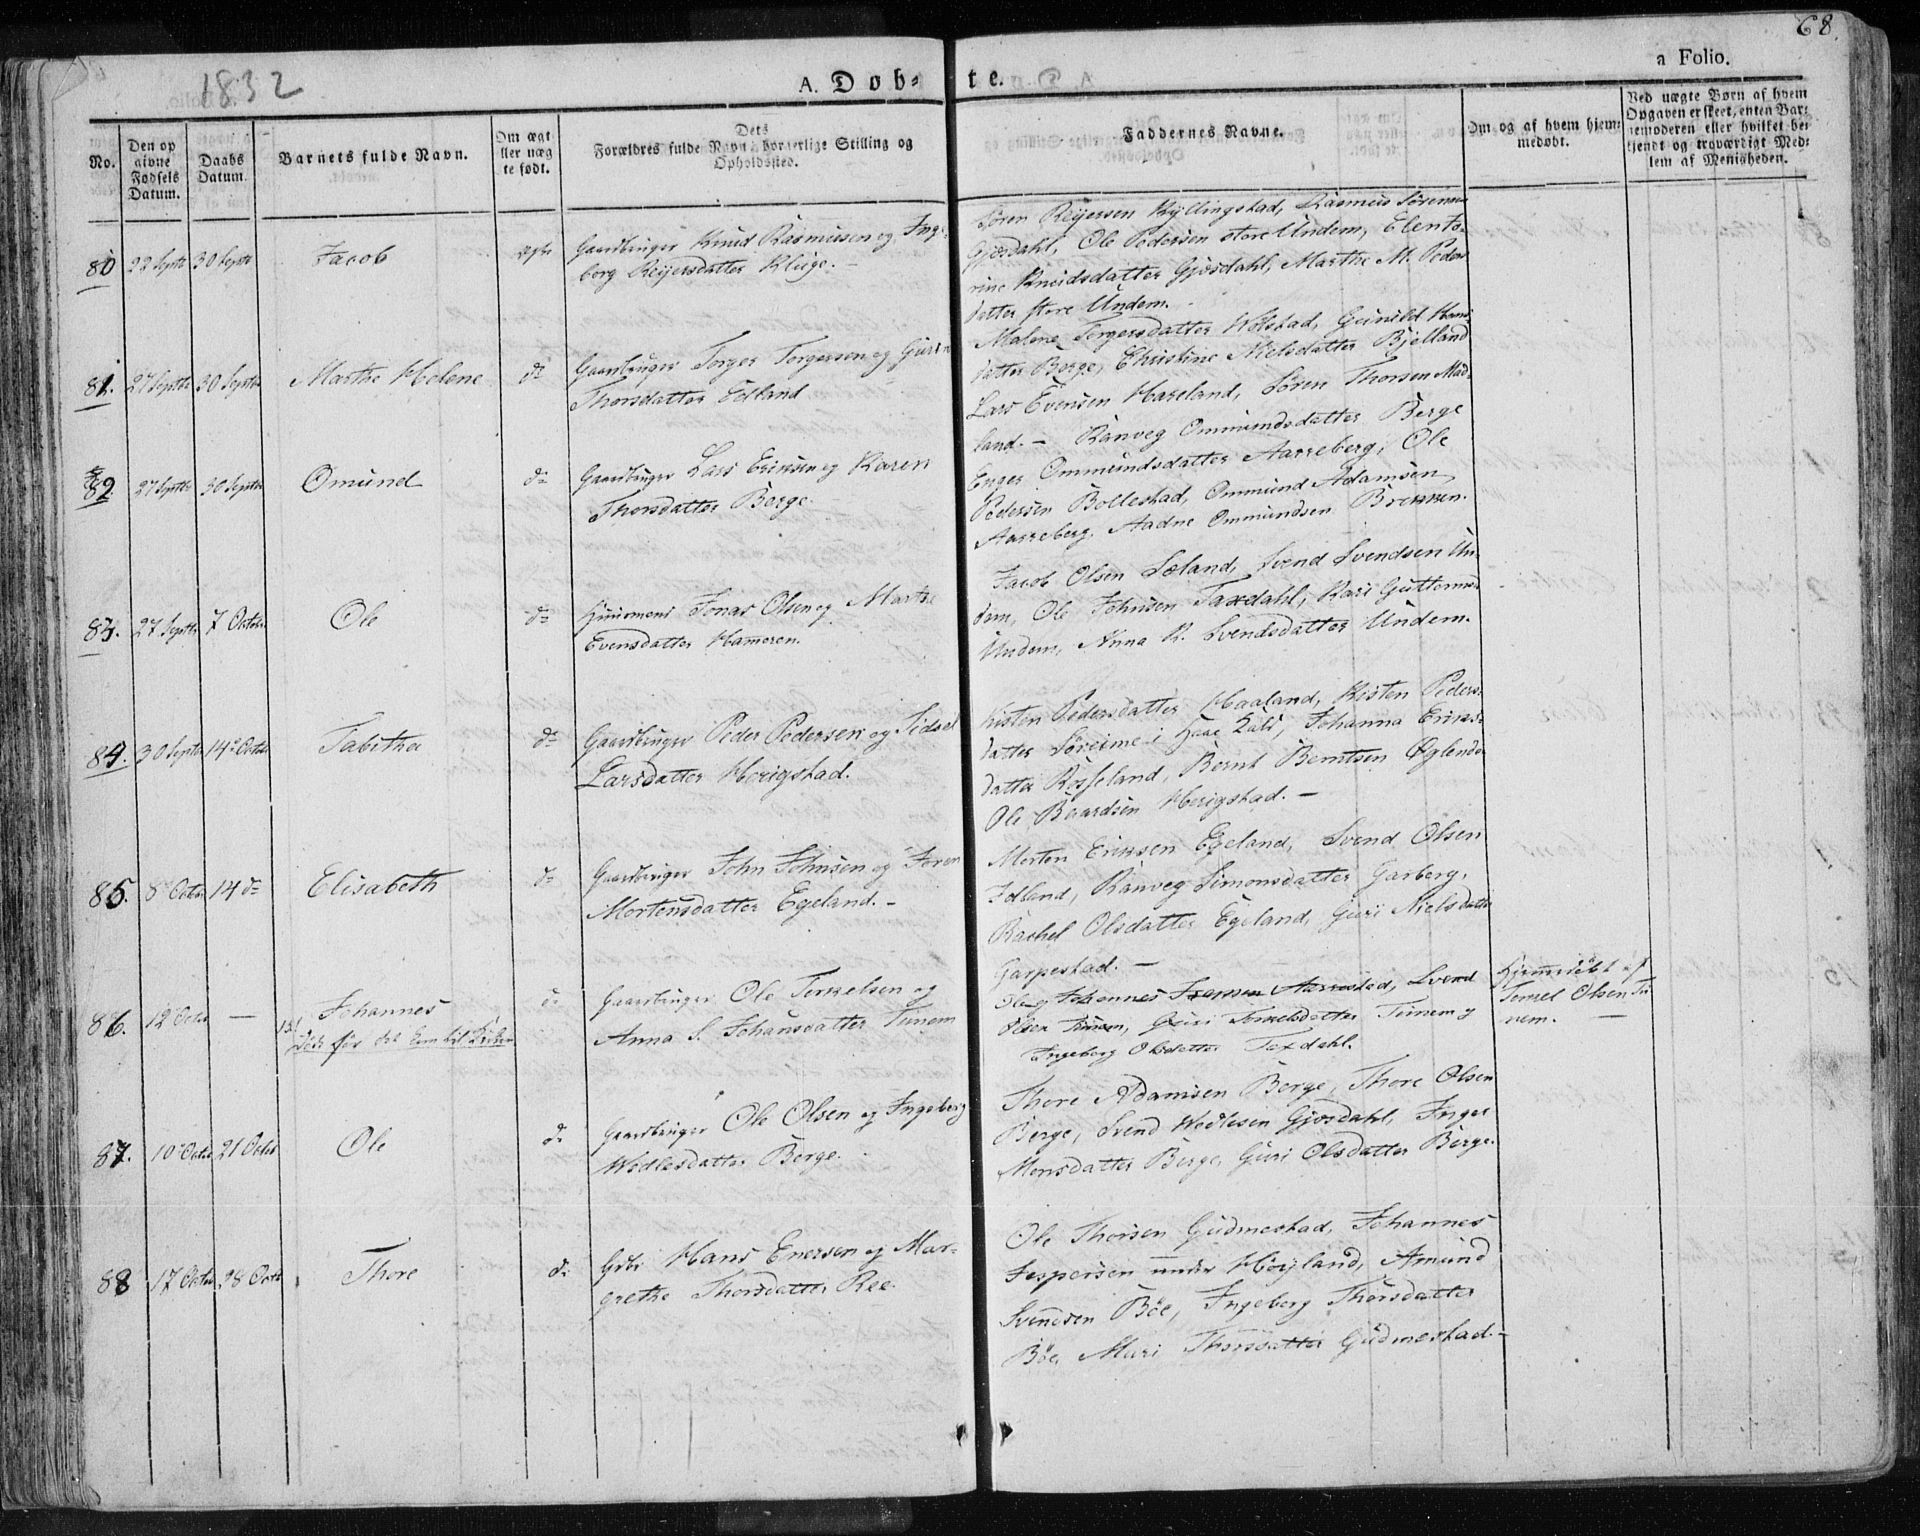 68.
1832
A. Döb-
te.
a Folio.
No.
Den op
givne
Födsels
Datum.
Daabs
Datum.
Barnets fulde Navn.
Om ægt
ller uæg
te födt.
Dets
Forældres fulde Navn, borgerlige Stilling og
Opholdssted.
Faddernes Navne.
Om og af hvem hjem-
medöbt.
Ved uægte Börn af hvem
Opgaven er skeet, enten Bar-
nemoderen eller hvilket be-
kjendt og troværdigt Med-
lem af Menigheden.
80
22 Septr
30 Septr
Jacob
ægte
Gaardbruger Knud Rasmusen og Inge-
borg Reijersdatter Kluge. -
Sören Reijersen Kyllingstad, Rasmus Sörensen
Gjösdahl, Ole Pedersen store Undem, Elen To-
rine Knudsdatter Gjösdahl, Marthe M. Peders
datter store Undem.
81.
27 Septbr
30 Septbr
Marthe Helene
do
Gaardbruger Torger Torgersen og Guri
Thorsdatter Edland
Malene Torgersdatter Wolstad, Gunild Hans
datter Berge, Christine Nielsdatter Bjelland
Lars Evensen Hareland, Sören Thorsen Mad-
land. -
82.
27 Septbr
30 Septbr
Omund
do
Gaardbruger Lars Eriksen og Karen
Thorsdatter Berge.
Ranveg Ommundsdatter Berge
Enger Ommundsdatter Aarreberg, Ole
Pedersen Bollestad, Ommund Adamsen
Aarreberg, Aadne Ommundsen Brekken.
83.
27 Septbr
7 Octobr
Ole
do
Huusmand Jonas Olsen og Marthe
Evensdatter Hameren.
Jacob Olsen Sæland, Svend Svendsen Un-
dem, Ole Johnsen Taxdahl, Kari Guttormsd
Undem, Anna K. Svendsdatter Undem.
84.
30 Septbr
14de Octobr
Tabitha
do
Gaardbruger Peder Pedersen og Sidsel
Larsdatter Herigstad.
Kisten Pedersdatter Haaland, Kisten Peders-
datter Söreime i Haae , Johanna Eriks-
datter Rosseland, Bernt Berntsen Öglend
Ole Baardsen Herigstad. -
85.
8 Octbr
14 do
Elisabeth
do
Gaardbruger John Johnsen og Joren
Mortensdatter Egeland. -
Morten Eriksen Egeland, Svend Olsen
Idland, Ranveg Simonsdatter Garberg,
Rachel Olsdatter Egeland, Guri Nielsdatter
Garpestad. -
86.
12 Octbr
-
Johannes
Död för det kom til Kirken
do
Gaardbruger Ole Terkelsen og
Anna S. Johansdatter Tunem
Ole og Johannes Aarrestad, Svend
Olsen Tunem, Guri Terkelsdatter Tunem og
Ingeborg Olsdatter Taxdahl.
Hjemmedöbt af
Terkel Olsen Tu
nem. -
87.
10 Octbr
21 Octbr
Ole
do
Gaardbruger Ole Olsen og Ingeborg
Wedlesdatter Berge.
Thore Adamsen Berge, Thore Olsen
Berge, Svend Wedlesen Gjösdahl, Inger
Monsdatter Berge, Guri Olsdatter Berge.
88
17 Octbr
28 Octbr
Thore
do
Gdbr Hans Enersen og Mar-
grethe Thorsdatter Ree.
Ole Thorsen Gudmestad, Johannes
Jespersen under Höyland, Amund
Svendsen Böe, Ingeborg Thorsdatter
Böe, Mari Thorsdatter Gudmestad. -